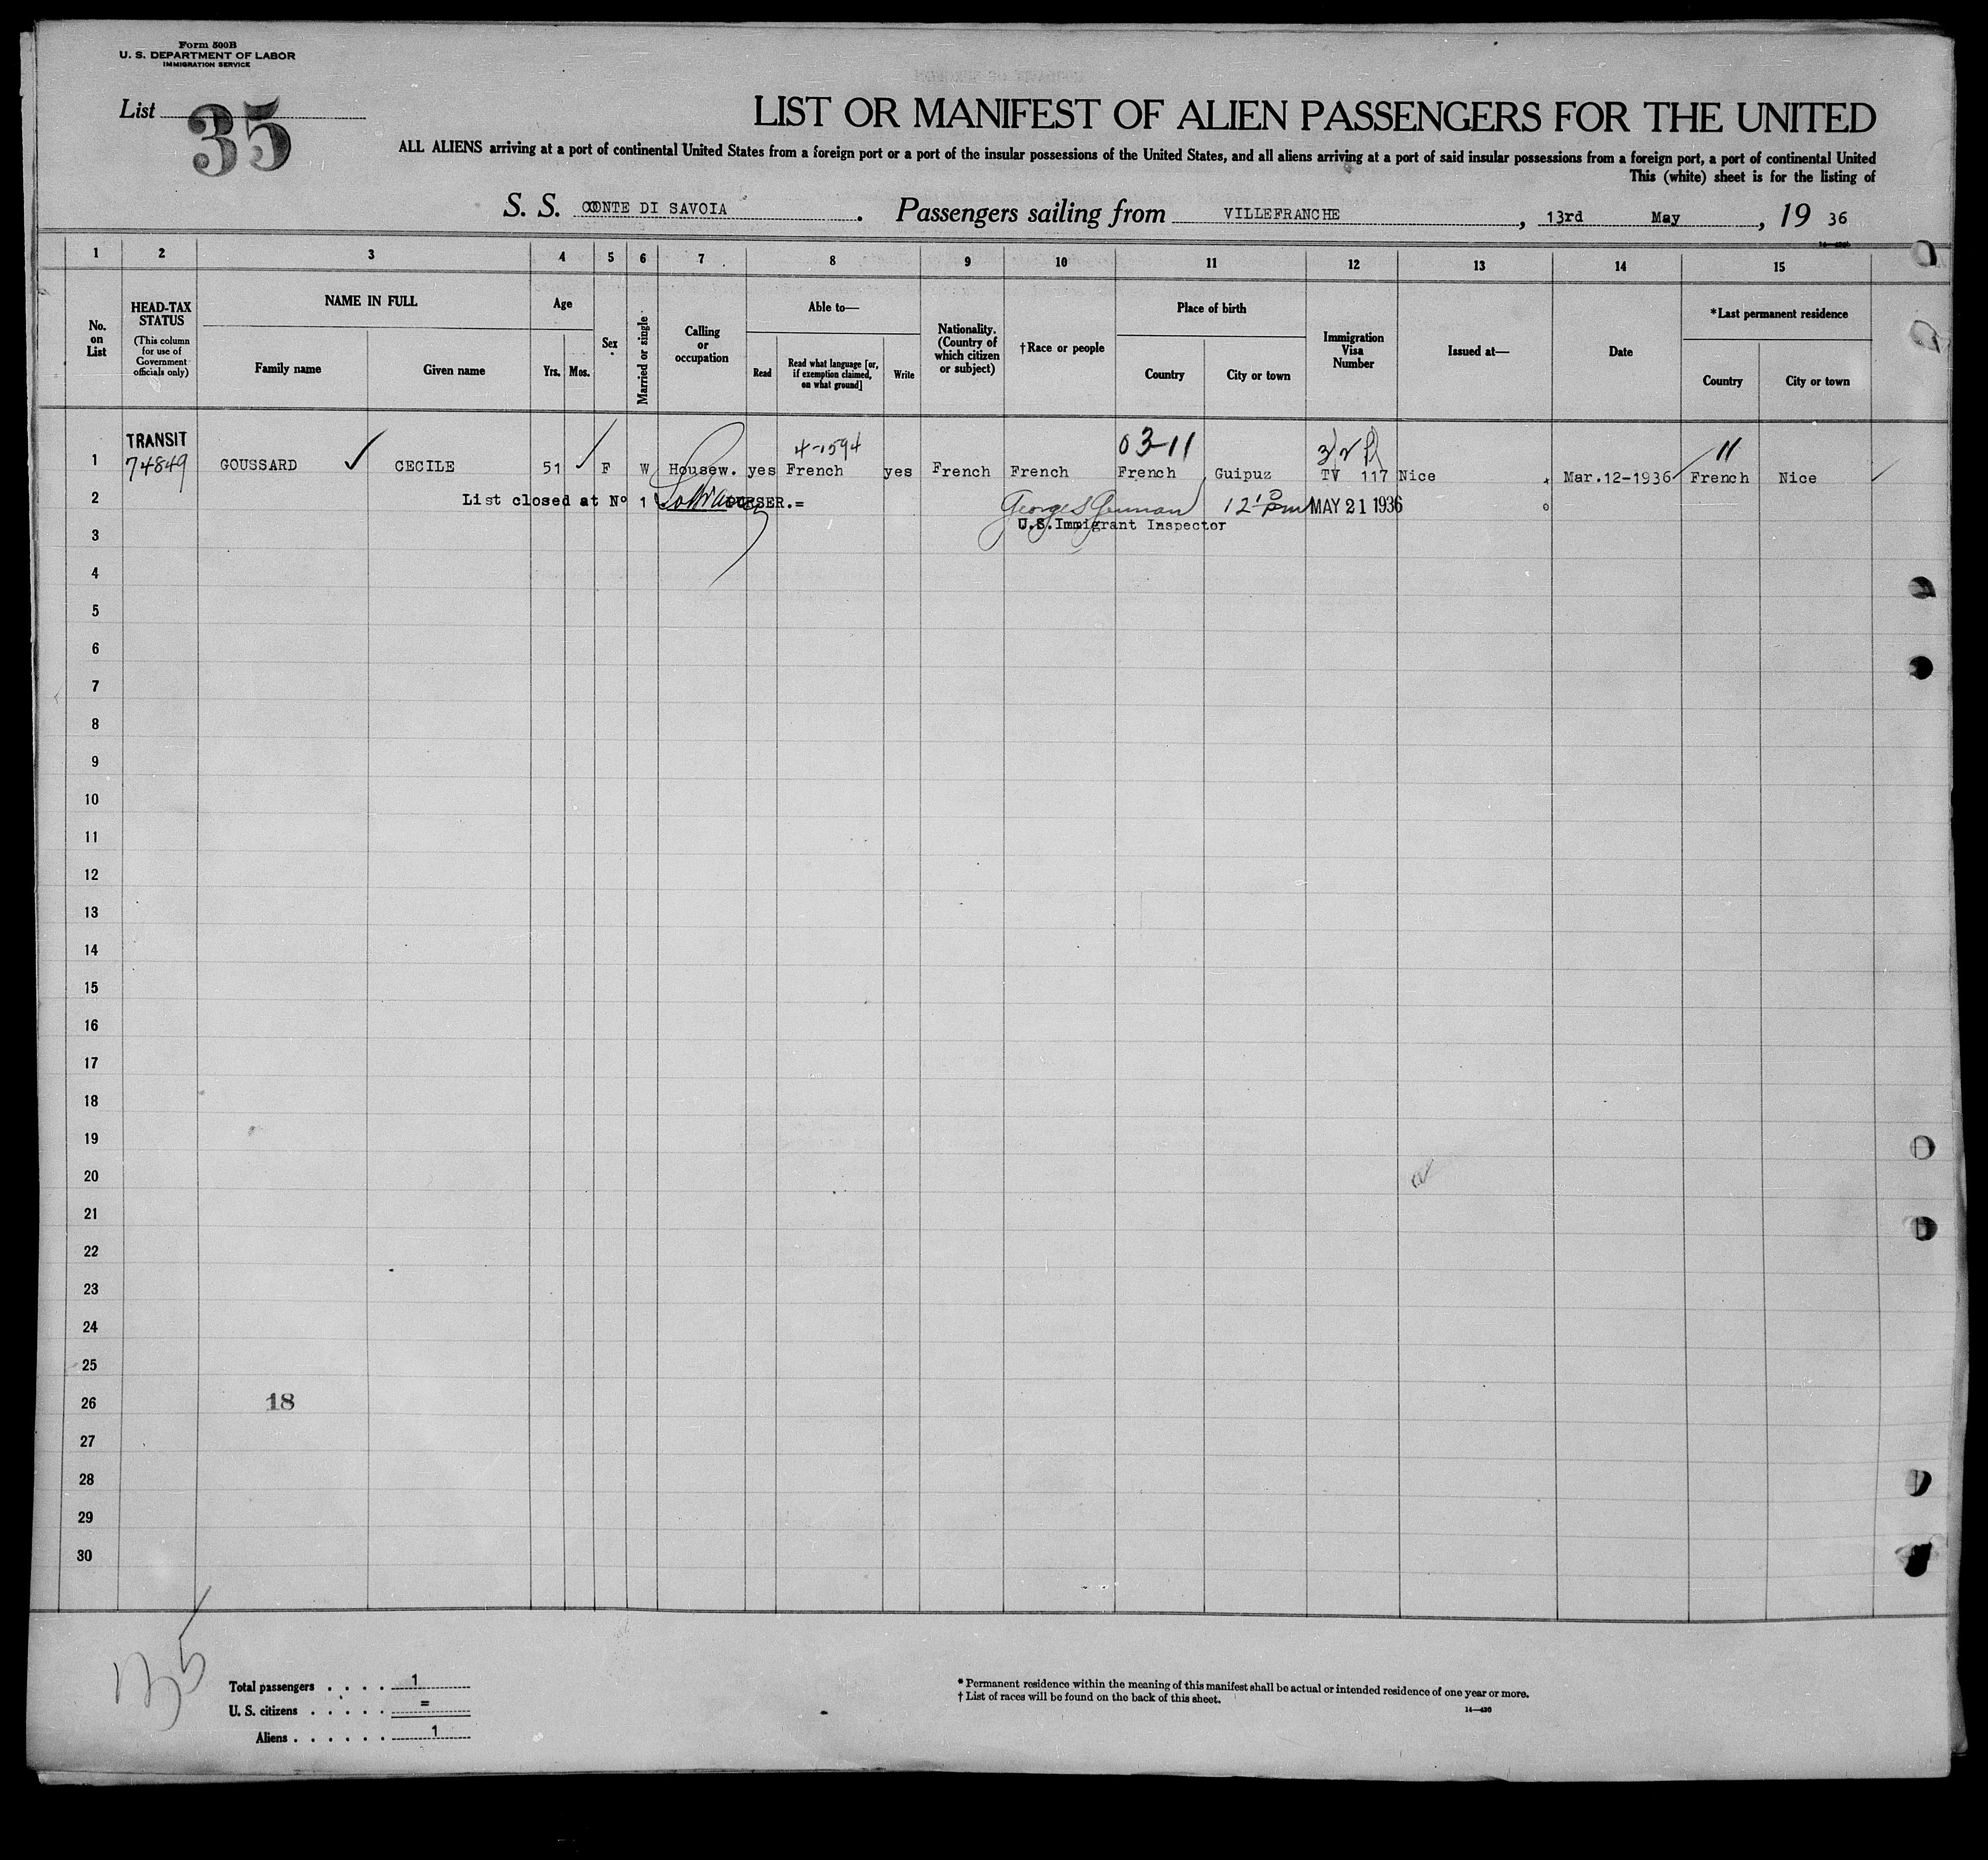 Form 500B
U. S. DEPARTMENT OF LABOR
IMMIGRATION SERVICE
List 35
LIST OR MANIFEST OF ALIEN PASSENGERS FOR THE UNITED
ALL ALIENS arriving at a port of continental United States from a foreign port or a port of the insular possessions of the United States, and all aliens arriving at a port of said insular possessions from a foreign port, a port of continental United
This (white) sheet is for the listing of
S. S. CONTE DI SAVOIA. Passengers sailing from VILLEFRANCHE, 13rd May, 19 36
1 2 3 4 5 6 7 8 9 10 11 12 13 14 15
No. on List
HEAD-TAX STATUS
(This column for use of Government officials only)
NAME IN FULL
Family name
Given name
Age
Yrs.
Mos.
Sex
Married or single
Calling or occupation
Able to—
Read
Read what language [or, if exemption claimed, on what ground]
Write
Nationality. (Country of which citizen or subject)
†Race or people
Place of birth
Country
City or town
Immigration Visa Number
Issued at—
Date
*Last permanent residence
Country
City or town
TRANSIT 4-1594 03-11 11
1 74849 GOUSSARD CECILE 51 F W Housew. yes French yes French French French Guipuz TV 117 Nice Mar.12-1936 French Nice
2 List closed at No 1 PURSER.= MAY 21 1936
U.S. Immigrant Inspector
3
4
5
6
7
8
9
10
11
12
13
14
15
16
17
18
19
20
21
22
23
24
25
26 18
27
28
29
30
135
Total passengers . . . . 1
U. S. citizens . . . . . =
Aliens . . . . . . 1
* Permanent residence within the meaning of this manifest shall be actual or intended residence of one year or more.
† List of races will be found on the back of this sheet.
14—430